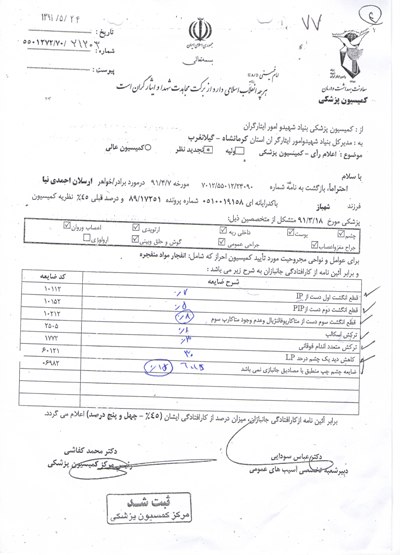 ۷۷
تاریخ : ۱۳۹۱/۰۵/۲۴
شماره : ۵۵۰۱۳۷۲/۷۰/
پیوست :
جمهوری اسلامی ایران
بسمه‌تعالی
امام خمینی (ره)
هرچه انقلاب اسلامی دارد از برکت مجاهدت شهدا و ایثارگران است
معاونت بهداشت و درمان
کمیسیون پزشکی
از : کمیسیون پزشکی بنیاد شهیدو امور ایثارگران
به : مدیرکل بنیاد شهیدوامور ایثارگران استان کرمانشاه - گیلانغرب
موضوع : اعلام رأی - کمیسیون پزشکی اولیه تجدید نظر کمیسیون عالی
با سلام
احتراما، بازگشت به نامه شماره ۷۰۱۲/۵۵۰۱۲/۲۳۰۹۰ مورخه ۹۱/۳/۷ درمورد برادر/خواهر ارسلان احمدی نیا
فرزند شهباز باکدرایانه ای ۰۵۱۰۰۱۹۱۵۸ شماره پرونده ۸۹/۱۷۳۵۱ و درصد قبلی ۴۵٪ نظریه کمیسیون
پزشکی مورخ ۹۱/۳/۱۸ متشکل از متخصصین ذیل:
چشم پوست داخلی ریه ارتوپدی اعصاب وروان
جراح مغزواعصاب جراحی عمومی گوش و حلق وبینی ارولوژی
برای عوامل و نواحی مجروحیت مورد تأیید کمیسیون احراز که شامل: انفجار مواد منفجره
و برابر آئین نامه ازکارافتادگی جانبازان به شرح زیر می باشد :
شرح ضایعه کد ضایعه
قطع انگشت اول دست از IP ۱۰۱۱۲
قطع انگشت دوم دست از PIP ٪۸ ۱۰۱۵۲
قطع انگشت سوم دست از متاکارپوفالنژیال وعدم وجود متاکارپ سوم ٪۸ ۱۰۲۱۲
ترکش اسکالپ ۲۵۰۵
ترکش متعدد اندام فوقانی ٪۳ ۱۷۷۲
کاهش دید یک چشم درحد LP ۳۰ ۶۰۱۲۱
ضایعه چشم چپ منطبق با مصادیق جانبازی نمی باشد ۰۶۹۸۲
برابر آئین نامه ازکارافتادگی جانبازان، میزان درصد از کارافتادگی ایشان (۴۵٪ - چهل و پنج درصد) اعلام می گردد.
دکتر محمد کفاشی
رئیس مرکز کمیسیون پزشکی
دکتر عباس سودایی
دبیرشعبه تخصصی آسیب های عمومی
ثبت شد
مرکز کمسیون پزشکی